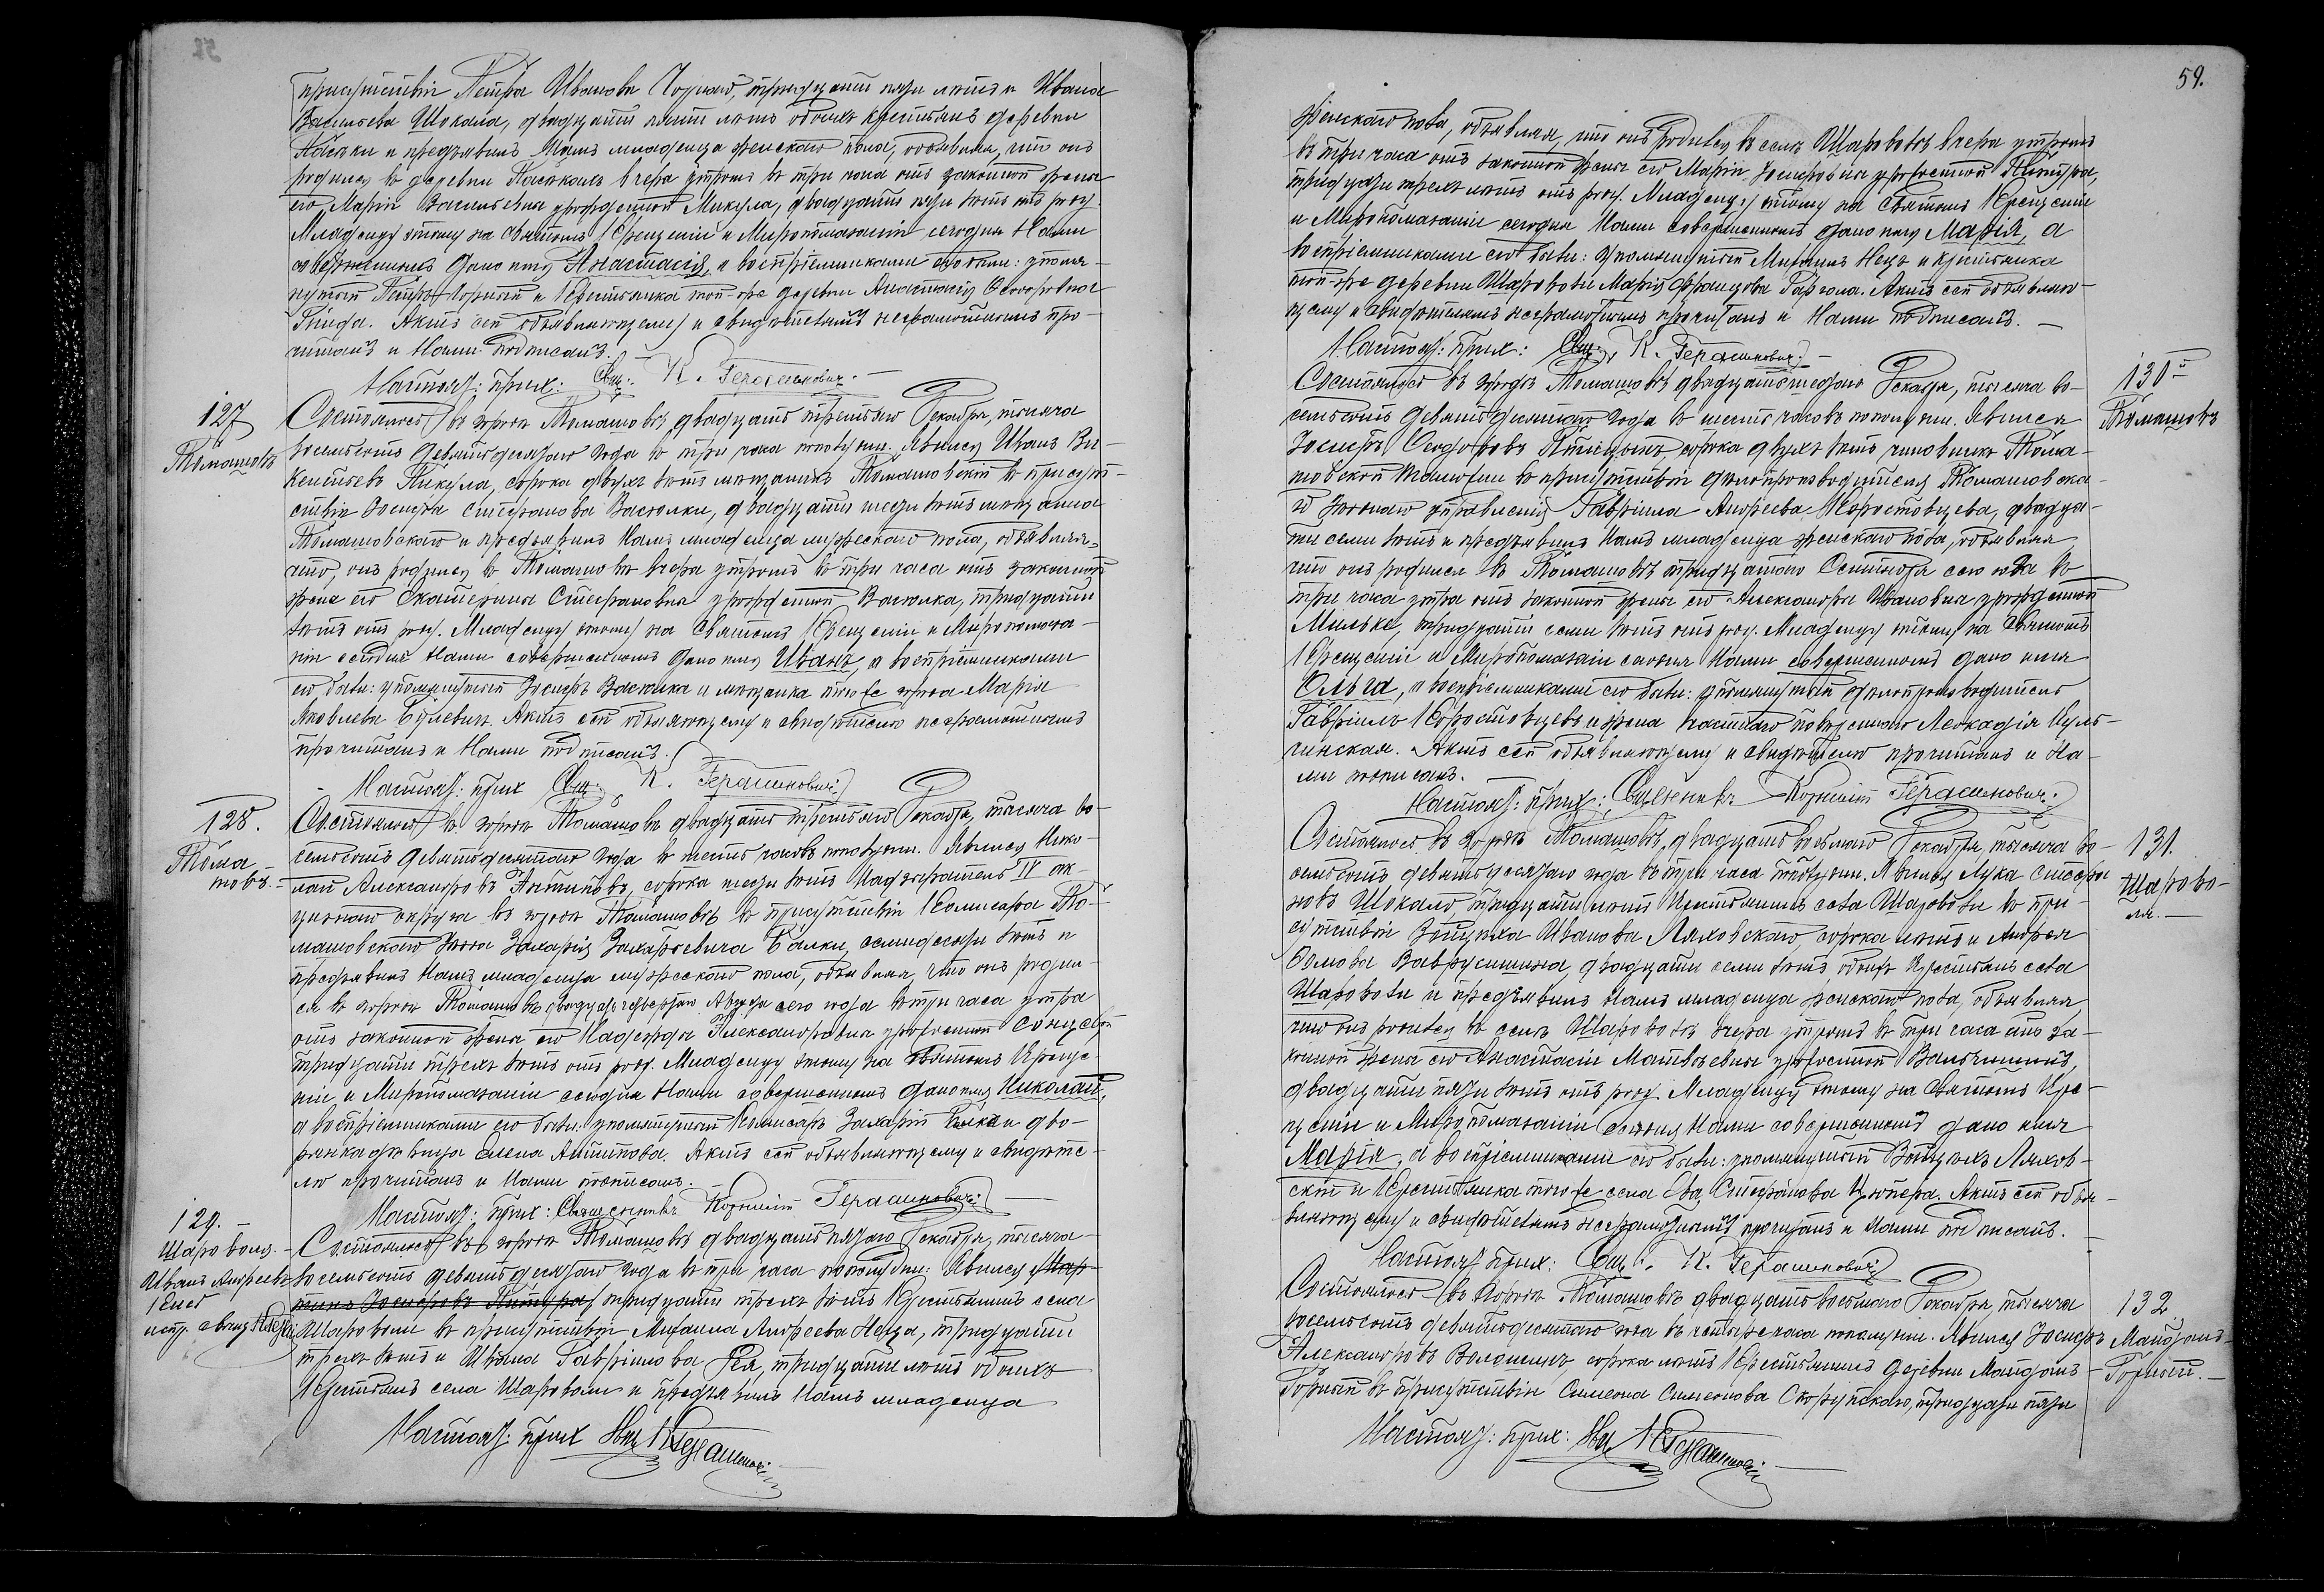 присутствіи Петра Иванова Чорнаго, тридцати пяти лѣтъ и Ивана
Васильева Шокала, двадцати пяти лѣтъ обоихъ крестьянъ деревни
Пасѣки и предъявилъ Намъ младенца женскаго пола, объявляя, что онъ
родился въ деревни Пасѣкахъ вчера утромъ въ три часа отъ законной жены
его Маріи Васильевны урожденной Микула, двадцати пяти лѣтъ отъ роду
Младенцу этому на Святомъ Крещеніи и Миропомазаніи сегодня Нами
совершенномъ дано имя Анастасія, а воспріемниками его были: упомя-
нутый Петръ Чорный и Крестьянка той-же деревни Анастасія Ѳеодоровна
Актъ сей объявляющему и свидѣтелямъ неграмотнымъ про-
читанъ и Нами подписанъ. —
Настоят: прих: Свящ: К. Герасимовичъ. —
127
Томашовъ
Состоялось въ городѣ Томашовѣ двадцать третьяго Декабря, тысяча
восемьсотъ девятьдесятаго года въ три часа пополудни. Явился Иванъ Ви-
кентьевъ Пикула, сорока двухъ лѣтъ мѣщанинъ Томашовскій въ присут-
ствіи Іосифа Стефанова Васюлки, двадцати шести лѣтъ мѣщанина
Томашовскаго и предъявилъ Намъ младенца мужескаго пола, объявляя,
что, онъ родился въ Томашовѣ вчера утромъ въ три часа отъ законной
жены его Екатерины Стефановны урожденной Васюлка, тридцати
лѣтъ отъ роду. Младенцу этому на Святомъ Крещеніи и Миропомаза-
ніи сегодня Нами совершенномъ дано имя Иванъ, а воспріемниками
его были: упомянутый Іосифъ Васюлка и мѣщанка того-же города Марія
Яковлева Актъ сей объявляющему и свидѣтелю неграмотнымъ
прочитанъ и Нами подписанъ.
Настоят: прих Свящ: К. Герасимовичъ
128.
Тома
шовъ. —
Состоялось въ городѣ Томашовѣ двадцать третьяго Декабря, тысяча во-
семьсотъ девятьдесятаго года въ шесть часовъ пополудни. Явился Нико-
лай Александровъ Антиповъ, сорока шести лѣтъ Надзиратель IV ак-
цизнаго округа въ городѣ Томашовѣ въ присутствіи Комисара То-
машовскаго Захарія Захарьевича Балки, семидесяти лѣтъ и
предъявилъ Намъ младенца мужескаго пола, объявляя, что онъ родил-
ся въ городѣ Томашовѣ двадцать четвертаго Августа сего года въ три часа утра
отъ законной жены его Надежды Александровны урожденной
тридцати трехъ лѣтъ отъ роду. Младенцу этому на Святомъ Креще-
ніи и Миропомазаніи сегодня Нами совершенномъ дано имя Николай,
а воспріемниками его были: упомянутый Комисаръ Захарій Балка и дво-
рянка дѣвица Елена Антипова. Актъ сей объявляющему и свидѣте-
лю прочитанъ и Нами подписанъ.
Настоят: прих: Священникъ Корнилій Герасимовичъ. —
129. —
Шароволя. —
Иванъ Андреевъ
испр. Свящ
Состоялось въ городѣ Томашовѣ двадцать пятаго Декабря, тысяча
восемьсотъ девятьдесятаго года въ три часа пополудни: Явился Мар
тинъ Іосифовъ тридцати трехъ лѣтъ Крестьянинъ села
Шароволи въ присутствіи Михаила Андреева Неца, тридцати
трехъ лѣтъ и Ивана Гавріилова тридцати лѣтъ обоихъ
Крестьянъ села Шароволи и предъявилъ Намъ младенца
Настоят: прих Свящ К Герасимовичъ
59.
женскаго пола, объявляя, что онъ родился въ селѣ Шароволѣ вчера утромъ
въ три часа отъ законной жены его Маріи Іосифовны урожденной
тридцати трехъ лѣтъ отъ роду. Младенцу этому на Святомъ Крещеніи
и Миропомазаніи сегодня Нами совершенномъ дано имя Марія, а
воспріемниками его были: упомянутый Михаилъ Нецъ и Крестьянка
той-же деревни Шароволи Марія Францова Актъ сей объявляю-
щему и свидѣтелямъ неграмотнымъ прочитанъ и Нами подписанъ. —
Настоят: прих: Свящ: К. Герасимовичъ. —
130
Томашовъ
Состоялось въ городѣ Томашовѣ двадцать шестаго Декабря, тысяча во-
семьсотъ девятьдесятаго года въ шесть часовъ пополудни. Явился
Іосифъ Ѳеодоровъ сорока двухъ лѣтъ чиновникъ Тома-
шовской таможни въ присутствіи дѣлопроизводителя Томашовска-
го управленія Гавріила Андреева Коростовцева, двадца-
ти семи лѣтъ и предъявилъ Намъ младенца женскаго пола, объявляя
что онъ родился въ Томашовѣ тридцатаго Сентября сего года въ
три часа утра отъ законной жены его Александры Ивановны урожденной
Милько, тридцати семи лѣтъ отъ роду. Младенцу этому на Святомъ
Крещеніи и Миропомазаніи сегодня Нами совершенномъ дано имя
Ольга, а воспріемниками его были: упомянутый дѣлопроизводитель
Гавріилъ Коростовцевъ и жена частнаго повѣреннаго Леокадія Куль-
чинская. Актъ сей объявляющему и свидѣтелю прочитанъ и На-
ми подписанъ.
Настоят: прих: Священникъ Корнилій Герасимовичъ.
131.
Шарово-
ля. —
Состоялось въ городѣ Томашовѣ, двадцать восьмаго Декабря, тысяча во-
семьсотъ девятьдесятаго года въ три часа пополудни. Явился Лука Стефа
новъ Шокало, тридцати лѣтъ Крестьянинъ села Шароволи въ при-
сутствіи Войцѣха Иванова Ляховскаго, сорока лѣтъ и Андрея
Ѳомова Ваврусишина, двадцати семи лѣтъ обоихъ Крестьянъ села
Шароволи и предъявилъ Намъ младенца женскаго пола, объявляя
что онъ родился въ селѣ Шароволѣ вчера утромъ въ три часа отъ за-
конной жены его Анастасіи Матвѣевны урожденной
двадцати пяти лѣтъ отъ роду. Младенцу этому на Святомъ Кре-
щеніи и Миропомазаніи сегодня Нами совершенномъ дано имя
Марія, а воспріемниками его были: упомянутый Войцѣхъ Ляхов-
скій и Крестьянка того-же села Ева Стефанова Актъ сей объя-
вляющему и свидѣтелямъ неграмотнымъ прочитанъ и Нами подписанъ. —
Настоят прих: Свящ. К. Герасимовичъ
132
Майданъ-
Горный. —
Состоялось въ городѣ Томашовѣ двадцать восьмаго Декабря, тысяча
восемьсотъ девятьдесятаго года въ четыре часа пополудни. Явился Іосифъ
Александровъ Волошинъ, сорока лѣтъ Крестьянинъ деревни Майданъ-
Горный въ присутствіи Симеона Симеонова Скорупскаго, тридцати пяти
Настоят: прих: Свящ К Герасимовичъ —